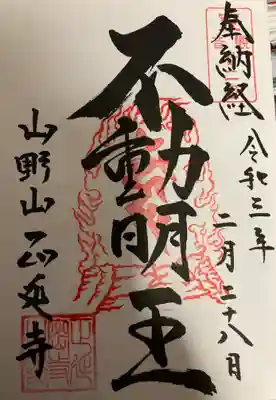 奉納経
令和三年
二月二十八日
不動明王
山野山
正延寺